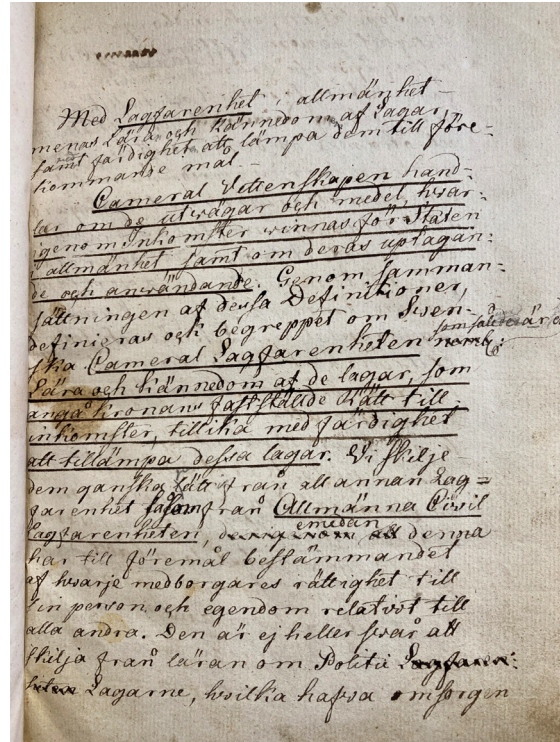 Med Lagfarenhet, i allmänhet
menas Lära och Kännedom af Lagar,
samt färdighet att lämpa dem till före-
kommande mål -
Cameral Vettenskapen hand-
lar om de utvägar och medel, hvar-
igenom inkomster vinnas för Staten
i allmänhet, samt om deras uptagan-
de och användande. Genom samman-
sättningen af dessa Definitioner,
definieras ock begreppet om Sven-
ska Cameral Lagfarenheten
som således är, a
Lära och kännedom af de lagar, som
angå kronans fastställde Rätt till
inkomster, tillika med färdighet
att tillämpa dessa lagar. Vi skilje
dem ganska lätt från all annan Lag-
farenhet såsom från Allmänna Civil
Lagfarenheten, emedan denna
har till föremål bestämmandet
af hvarje medborgares rättighet till
sin person och egendom relativt till
alla andra. Den är ej heller svår att
skilja från läran om Politii
Lagarne, hvilka hafva omsorgen